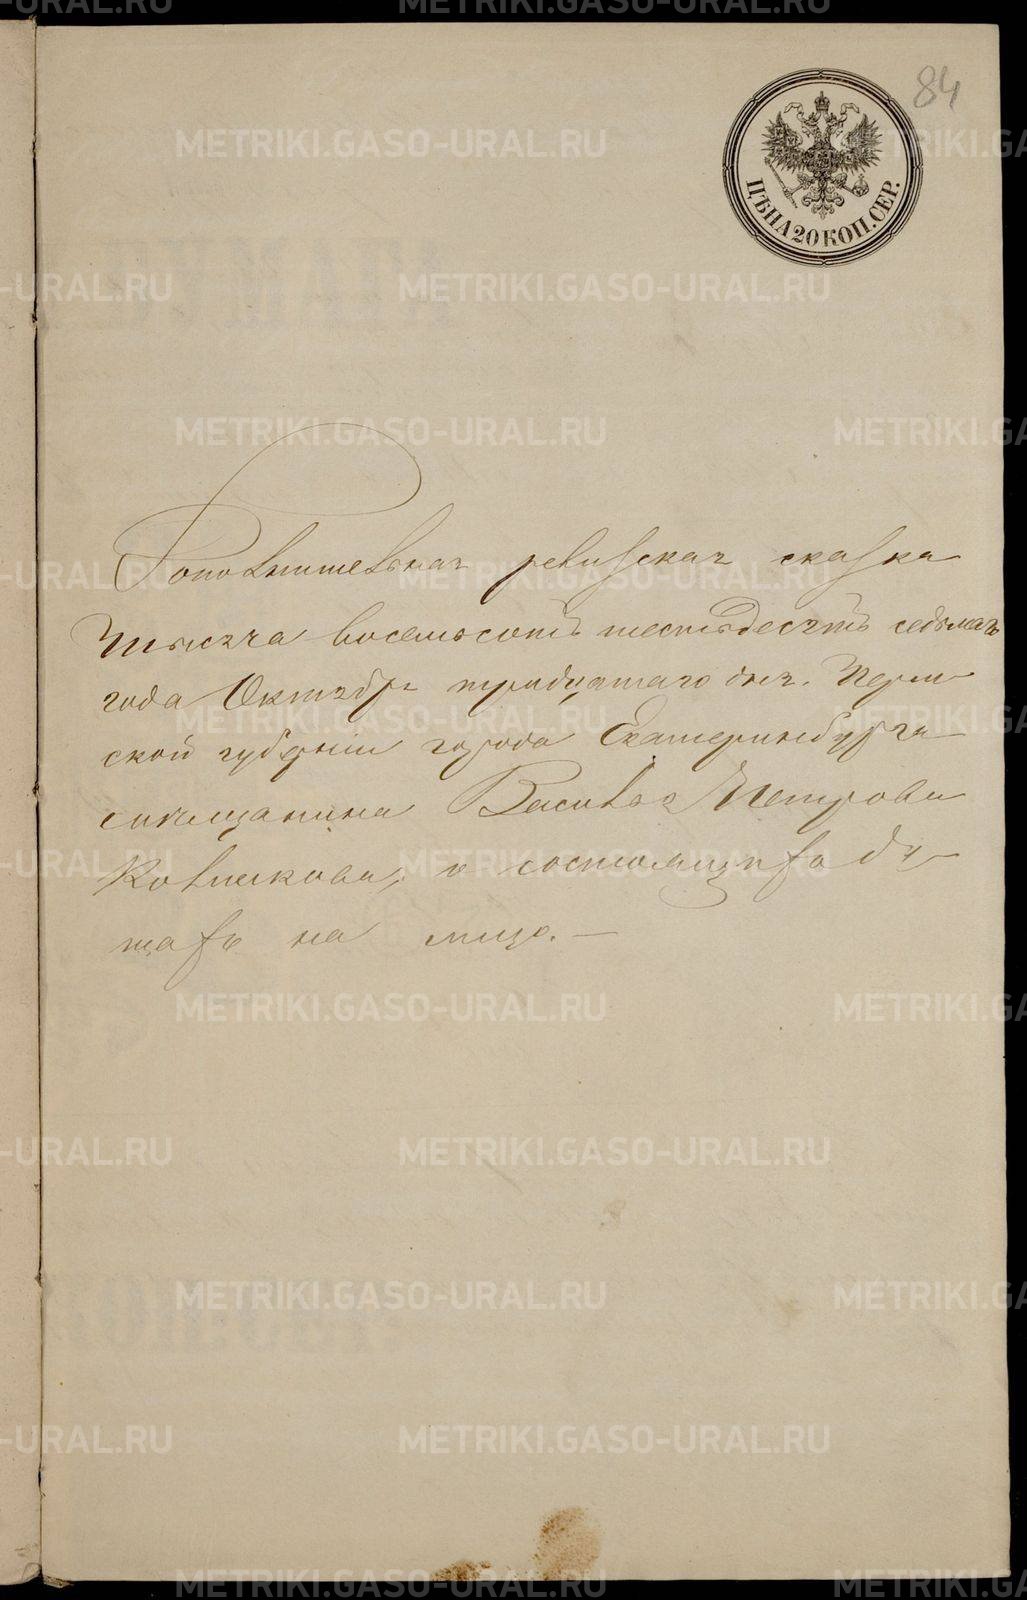 84
ЦѢНА 20 КОП. СЕР.
Дополнительная ревизская сказка
тысяча восемьсотъ шестьдесятъ седьмаго
года Октября тридцатаго дня. Перм
ской губерніи города Екатеринбурга
мѣщанина Василья Петрова
о состоящихъ ду
шахъ на лицо. —
METRIKI.GASO-URAL.RU